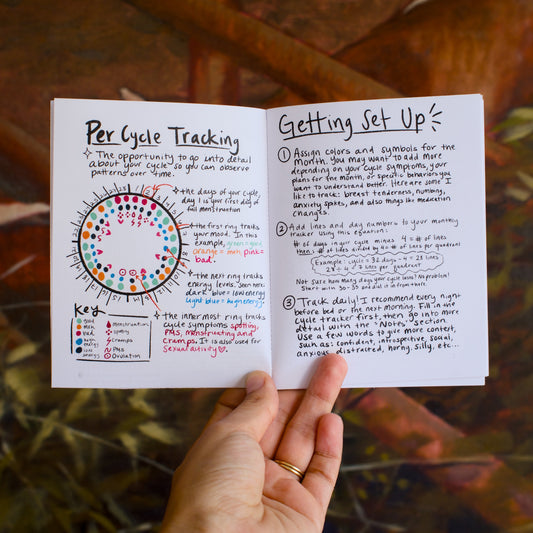 Per Cycle Tracking
The opportunity to go into detail
about your cycle so you can observe
patterns over time.
the days of your cycle,
day 1 is your first day of
full menstruation
the first ring tracks
your mood. In this
example, green = good
orange = meh, pink =
bad.
the next ring tracks
energy levels. Seen here:
dark blue = low energy
light blue = high energy.
the inner-most ring tracks
cycle symptoms spotting,
PMS, menstruating and
cramps. It is also used for
sexual activity
Key
good
meh
bad
high
energy
low
energy
Menstruation
Spotty
Cramps
PMS
Ovulation
Getting Set Up
1 Assign colors and symbols for the
month. You may want to add more
depending on your cycle symptoms, your
plans for the month, or specific behaviors you
want to understand better. Here are some I
like to track: breast tenderness, numbing,
anxiety spikes, and also things like medication
changes.
2 Add lines and day numbers to your monthly
tracker using this equation:
# of days in your cycle minus 4 = # of lines
then # of lines divided by 4 = # of lines per quadrant
Example: cycle = 32 days - 4 = 28 lines
28 ÷ 4 = 7 lines per quadrant
Not sure how many days your cycle lasts? No problem!
Start with 30-35 and add in from there.
3 Track daily! I recommend every night
before bed or the next morning. Fill in the
cycle tracker first then go into more
detail with the "Notes" section.
Use a few words to give more context,
such as: confident, introspective, social,
anxious, distracted, horny, silly, etc...